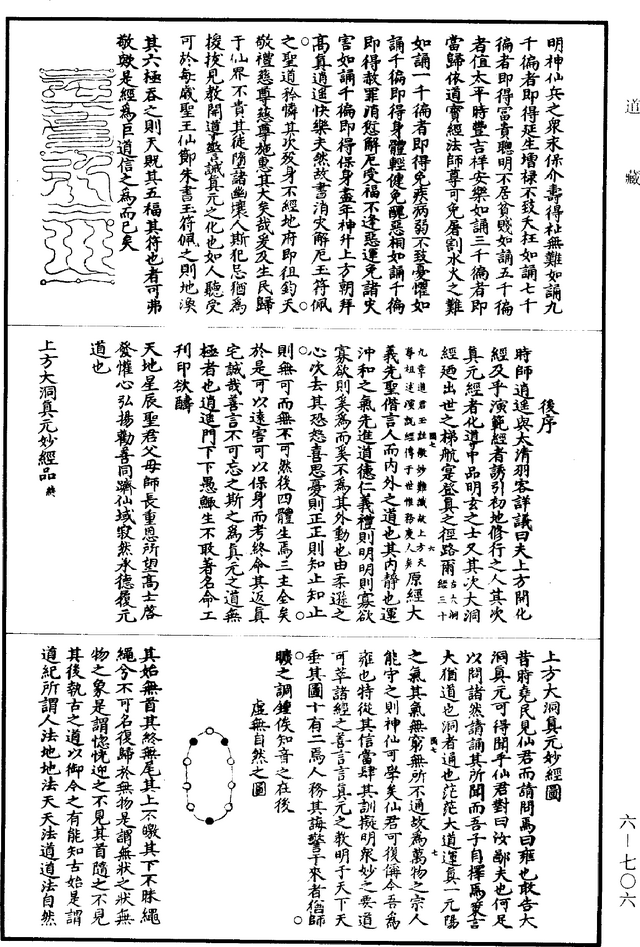 道藏
明神仙兵之衆末保介壽得祉無難如誦九
千徧者即得延生增祿不致夭枉如誦七千
徧者即得富貴聰明不居貧賤如誦五千徧
者值太平時豐吉祥安樂如誦三千徧者即
當歸依道寶經法師尊可免屠割水火之難
如誦一千徧者即得免疾病弱不致憂懼如
誦千徧即得身體輕健免醜惡相如誦千徧
即得赦罪消愆解厄受福不逢惡運免諸災
害如誦千徧即得保身盡年神升上方朝拜
高真逍遥快樂夫然故書消災解厄王符佩
之聖道矜憐其次歿身不經地府即徂鈞天
敬禮慈尊慈尊施惠其大矣哉爰及生民歸
于仙界不貴其徒隋諸幽壤人斯犯忌猶爲
援拔見教開導警誡真元之化也如人聽受
可於每歲聖王仙節朱書玉符佩之則地渙
其六極吞之則天既其五福其符也者可弗
敬歟是經爲巨道信之爲而已矣
後序
時師逍遥與太清羽客詳議曰夫上方開化
經及乎演範經者誘引初地修行之人其次
真元經者化導中品明玄之士又其次大洞
經廼出世之梯航寔登真之徑路爾古大洞經三十
九章道君玉註微妙難議故上方天尊祖述演說經傳于世惟務度人矣原經大
義先聖偕言人而内外之道也其内靜也運
沖和之氣先進道德仁義禮則明明則寡欲
寡欲則奚爲而奚不爲其外動也由柔遜之
心次去其恐怒喜思憂則正正則知止知止
則無可而無不可然後四體生焉三主全矣
於是可以遠害可以保身而考終命其返真
宅誠哉善言不可忘之斯之爲真元之道無
極者也逍遥門下下愚鯫生不敢著名命工
刊印欲酬
天地星辰聖君父母師長重恩所望高士啓
發懽心弘揚勸善同躋仙域寂然承德履元
道也
上方大洞真元妙經品
上方大洞真元妙經圖
昔時堯民見仙君而請問焉曰雍也敢告大
洞真元可得聞乎仙君對曰汝鄙夫也何足
以問諸然請誦其所聞而吾子自擇焉粟言
大猶道也洞者通也茫茫大道運真一元陽
之氣其氣無窮無所不通故爲萬物之宗人
能守之則神仙可學矣仙君可復偁今吾爲
雍也特從其信當肆其訓擬明衆妙之要道
可萃諸經之善言言真元之教明于天下天
垂其圖十有二焉人務其誨警于來者偕師
曠之調鐘俟知音之在後
虛無自然之圖
其始無首其終無尾其上不皦其下不昧繩
繩兮不可名復歸於無物是謂無狀之狀無
物之象是謂惚恍迎之不見其首隨之不見
其後執古之道以御今之有能知古始是謂
道紀所謂人法地地法天天法道道法自然
六—七〇六